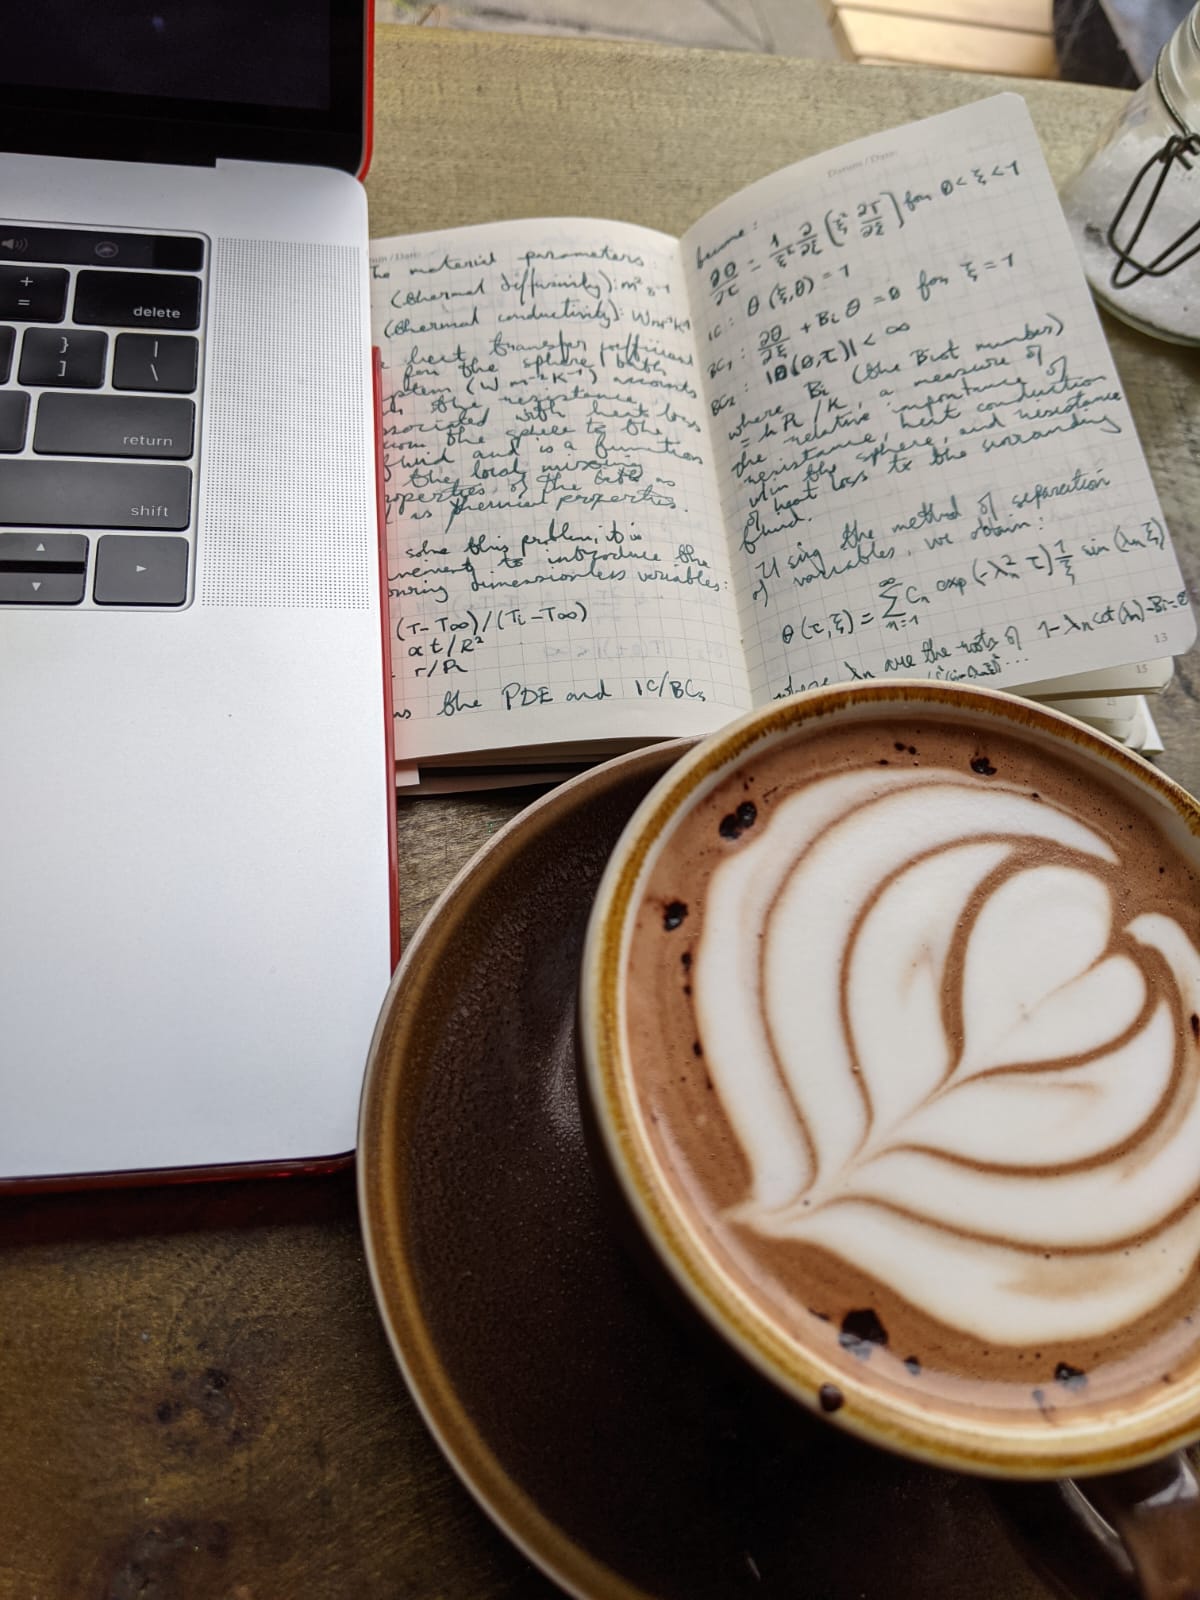 +
=
delete
}
]
|
\
return
shift
material parameters
(thermal diffusivity): m² s⁻¹
(thermal conductivity): W m⁻¹ K⁻¹
heat transfer coefficient
for the sphere / bath
(W m⁻² K⁻¹) accounts
the resistance
with heat loss
the sphere to the
fluid and is a function
the local mixing
properties of the as
as thermal properties.
solve this problem, it is
to introduce the
dimensionless variables:
(T - T∞) / (Ti - T∞)
αt/R²
r/R
the PDE and IC/BCs
Datum / Date:
become:
∂θ/∂τ = 1/ξ² ∂/∂ξ (ξ² ∂T/∂ξ) for 0 < ξ < 1
IC: θ(ξ,0) = 1
BC1: ∂θ/∂ξ + Bi θ = 0 for ξ = 1
BC2: |θ(0,τ)| < ∞
where Bi (the Biot number)
= hR/K, a measure of
the relative importance of
resistance, heat conduction
w/in the sphere, and resistance
of heat loss to the surrounding
fluid.
Using the method of separation
of variables, we obtain:
θ(τ,ξ) = ∞ Σ n=1 Cn exp(-λn² τ) 1/ξ sin(λn ξ)
where λn are the roots of 1 - λn cot(λn) - Bi = 0
13
15